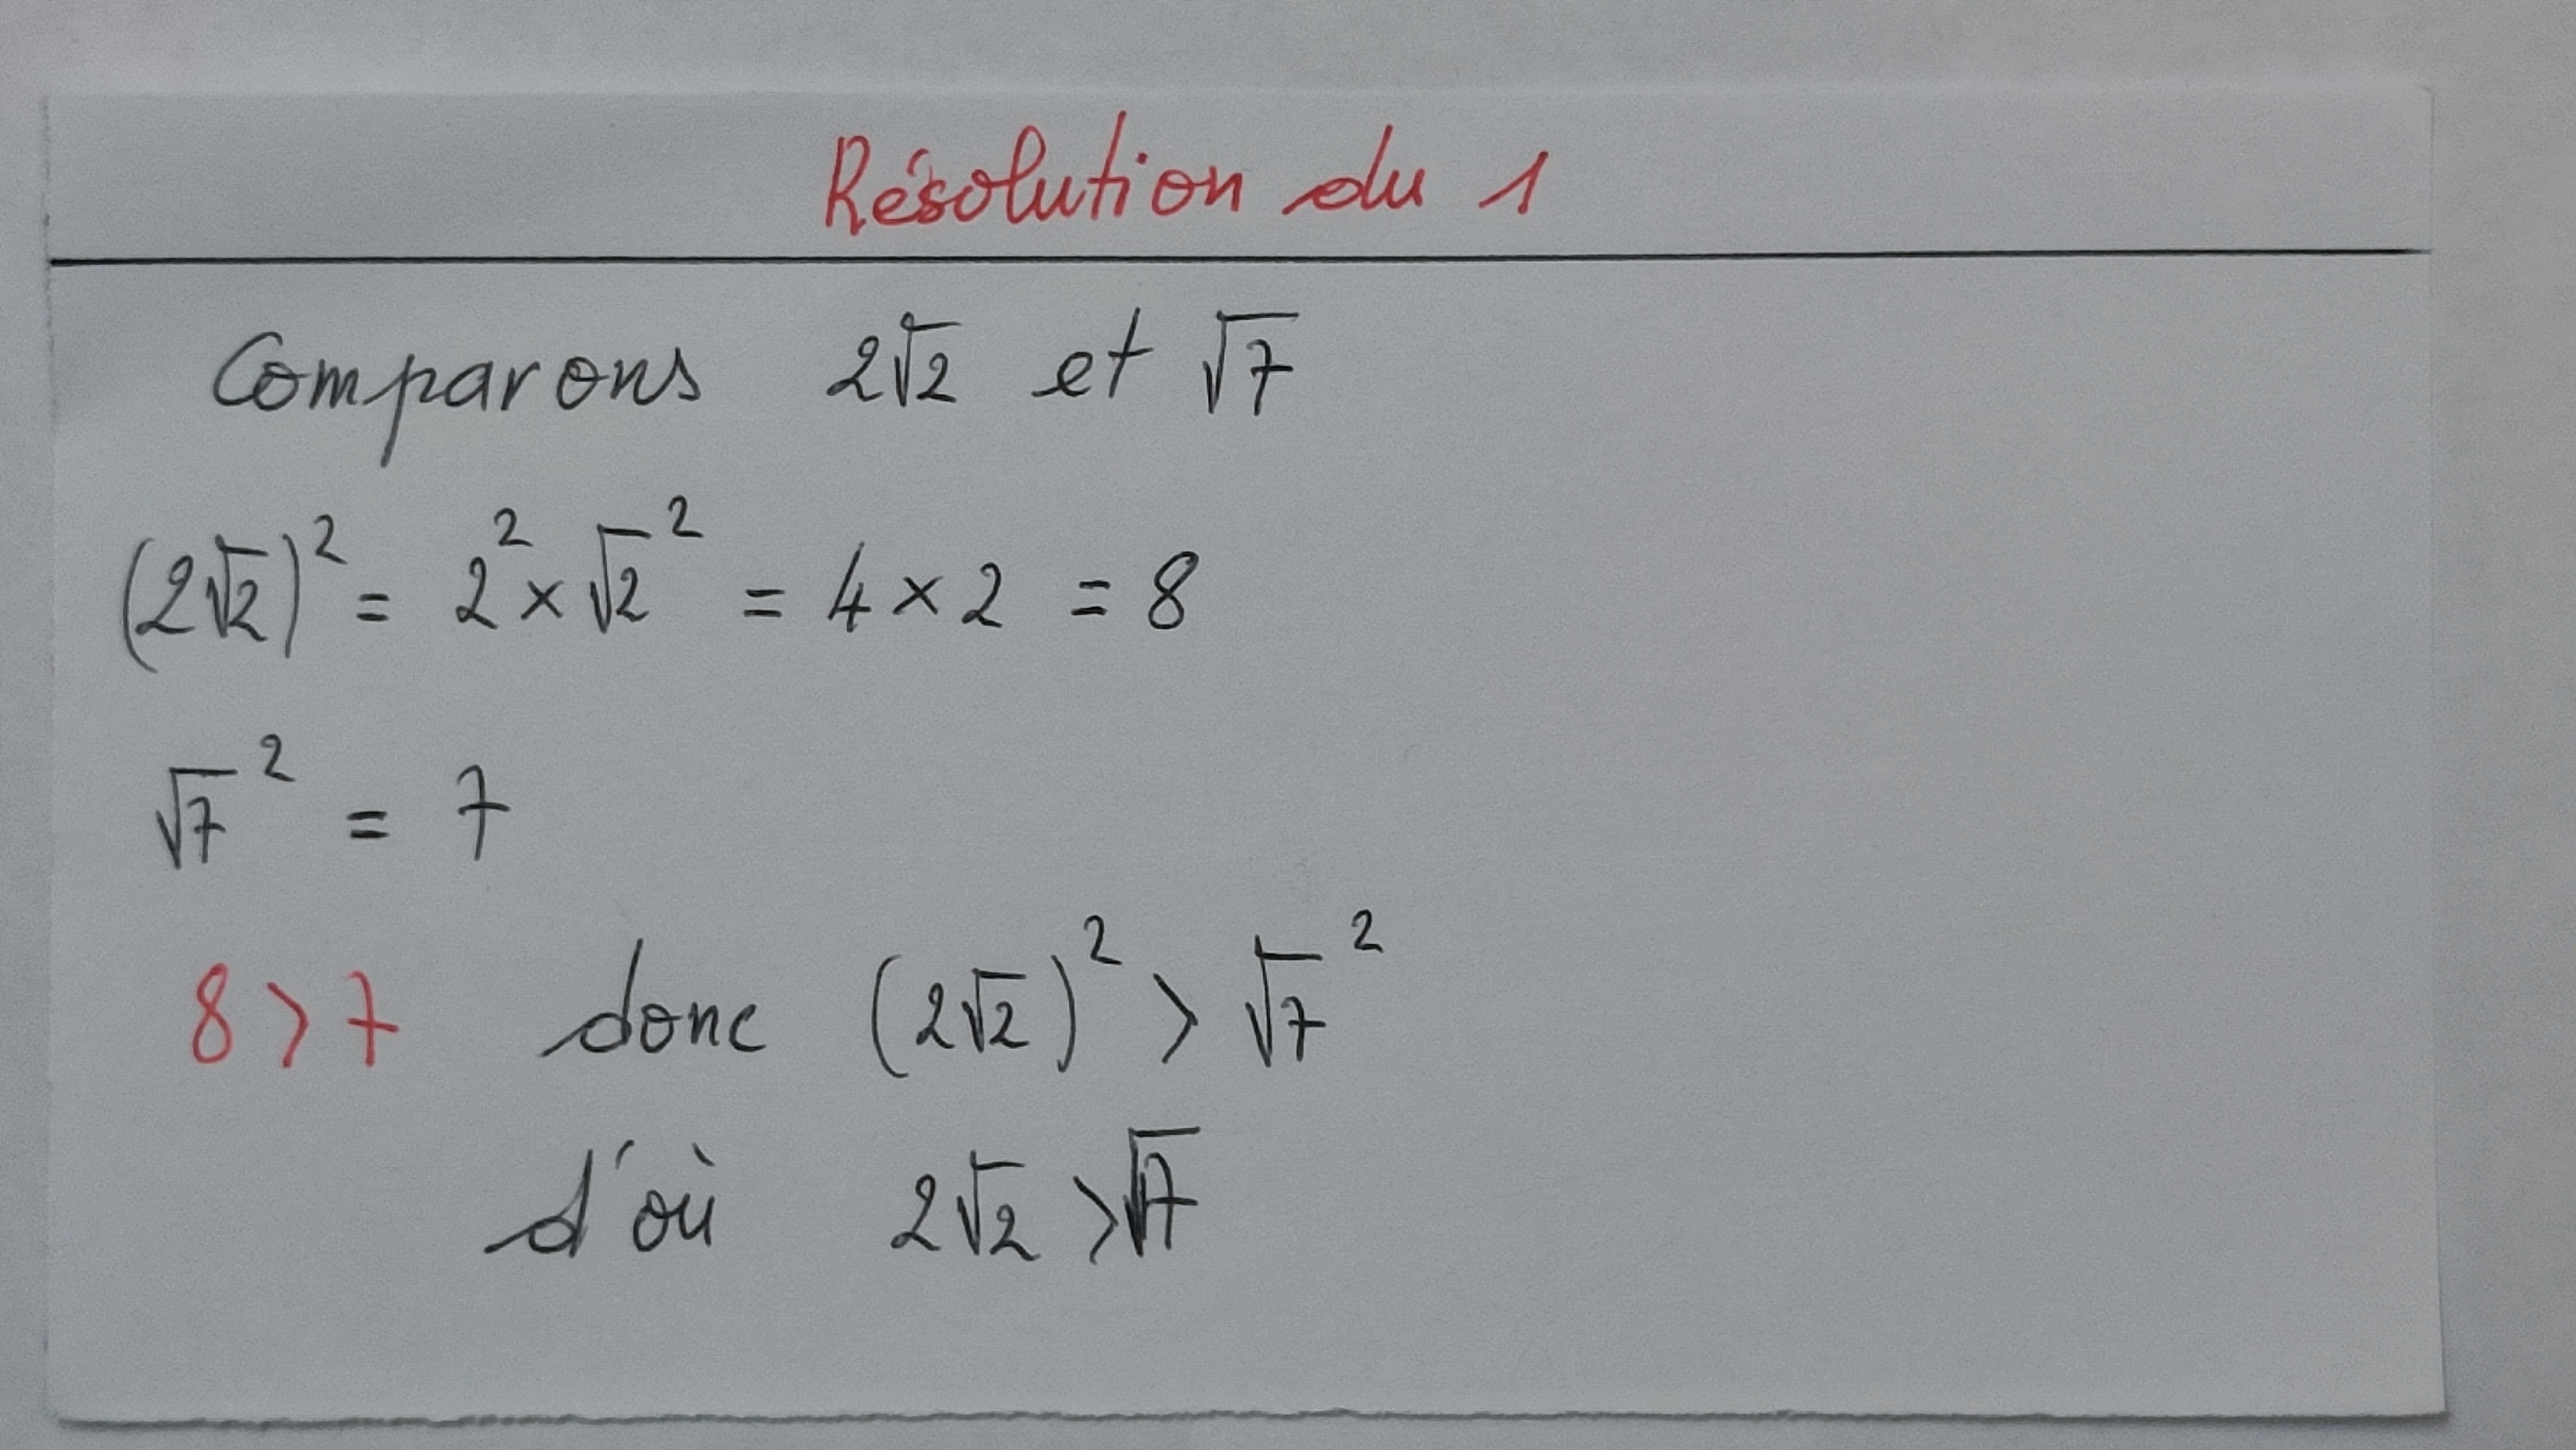 Résolution du 1
Comparons 2√2 et √7
(2√2)² = 2² × √2² = 4 × 2 = 8
√7² = 7
8 > 7 donc (2√2)² > √7²
d'où 2√2 > √7